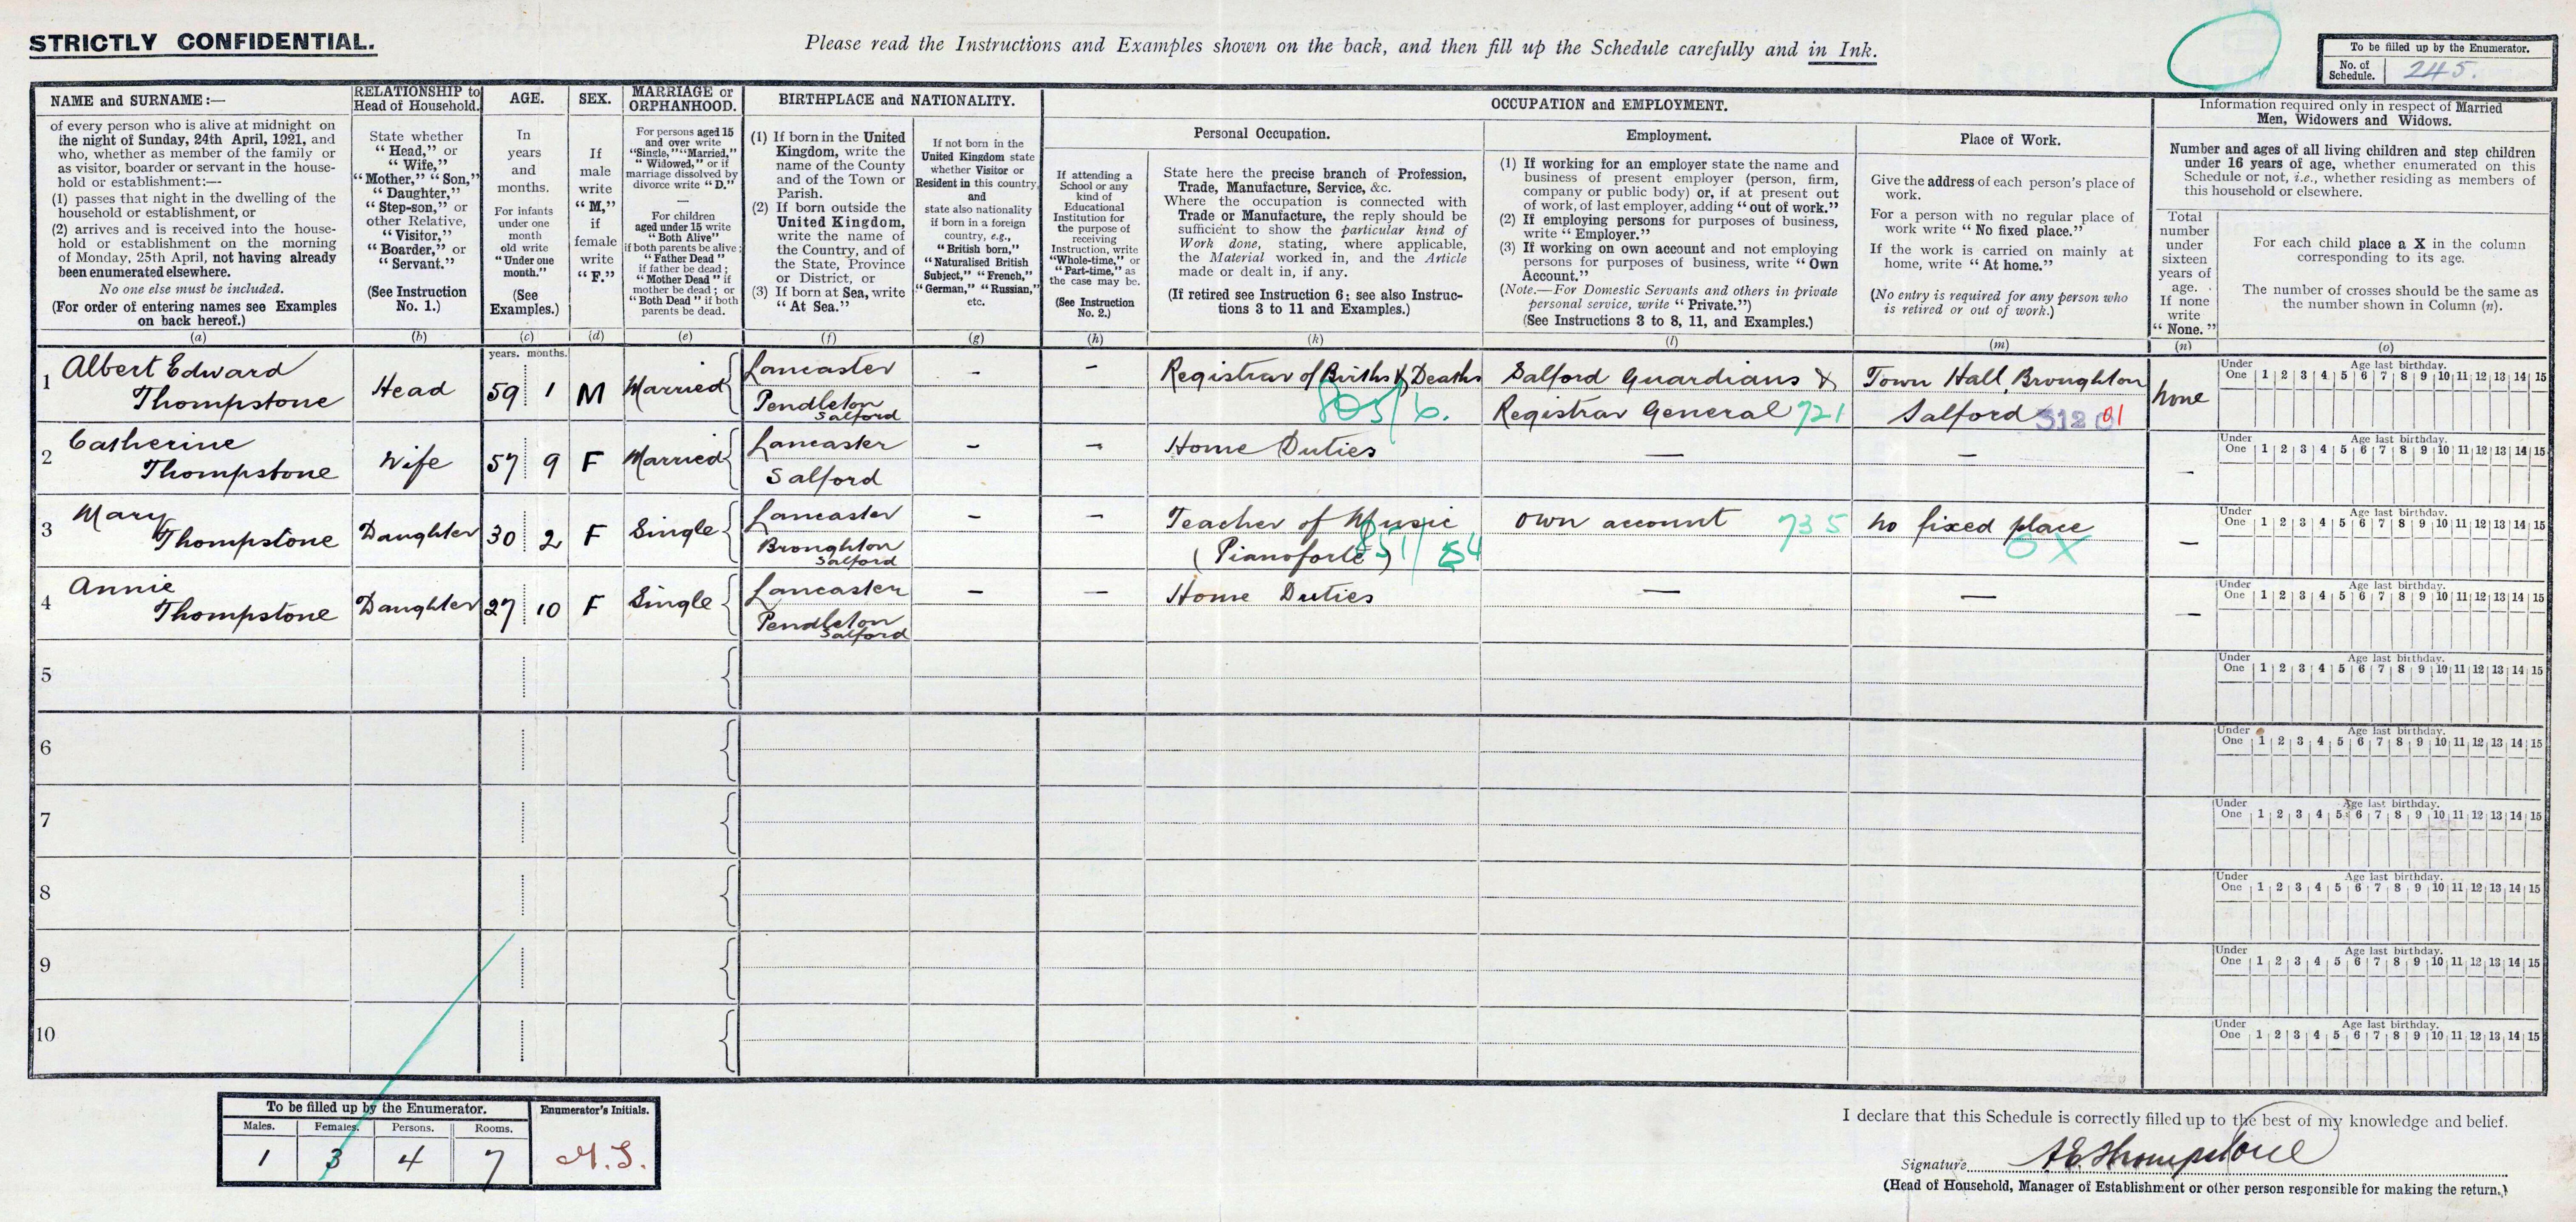 STRICTLY CONFIDENTIAL.
Please read the Instructions and Examples shown on the back, and then fill up the Schedule carefully and in Ink.
To be filled up by the Enumerator.
No. of Schedule. 245.
NAME and SURNAME:—
of every person who is alive at midnight on
the night of Sunday, 24th April, 1921, and
who, whether as member of the family or
as visitor, boarder or servant in the house-
hold or establishment:—
(1) passes that night in the dwelling of the
household or establishment, or
(2) arrives and is received into the house-
hold or establishment on the morning
of Monday, 25th April, not having already
been enumerated elsewhere.
No one else must be included.
(For order of entering names see Examples
on back hereof.)
(a)
RELATIONSHIP to
Head of Household.
State whether
"Head," or
"Wife,"
"Mother," "Son,"
"Daughter,"
"Step-son," or
other Relative,
"Visitor,"
"Boarder," or
"Servant."
(See Instruction
No. 1.)
(b)
AGE.
In
years
and
months.
For infants
under one
month
old write
"Under one
month."
(See
Examples.)
(c)
SEX.
If
male
write
"M,"
if
female
write
"F."
(d)
MARRIAGE or
ORPHANHOOD.
For persons aged 15
and over write
"Single," "Married,"
"Widowed," or if
marriage dissolved by
divorce write "D."
For children
aged under 15 write
"Both Alive"
if both parents be alive;
"Father Dead"
if father be dead;
"Mother Dead" if
mother be dead; or
"Both Dead" if both
parents be dead.
(e)
BIRTHPLACE and NATIONALITY.
(1) If born in the United
Kingdom, write the
name of the County
and of the Town or
Parish.
(2) If born outside the
United Kingdom,
write the name of
the Country, and of
the State, Province
or District, or
(3) If born at Sea, write
"At Sea."
(f)
If not born in the
United Kingdom state
whether Visitor or
Resident in this country,
and
state also nationality
if born in a foreign
country, e.g.,
"British born,"
"Naturalised British
Subject," "French,"
"German," "Russian,"
etc.
(g)
OCCUPATION and EMPLOYMENT.
If attending a
School or any
kind of
Educational
Institution for
the purpose of
receiving
Instruction, write
"Whole-time," or
"Part-time," as
the case may be.
(See Instruction
No. 2.)
(h)
Personal Occupation.
State here the precise branch of Profession,
Trade, Manufacture, Service, &c.
Where the occupation is connected with
Trade or Manufacture, the reply should be
sufficient to show the particular kind of
Work done, stating, where applicable,
the Material worked in, and the Article
made or dealt in, if any.
(If retired see Instruction 6; see also Instruc-
tions 3 to 11 and Examples.)
(k)
Employment.
(1) If working for an employer state the name and
business of present employer (person, firm,
company or public body) or, if at present out
of work, of last employer, adding "out of work."
(2) If employing persons for purposes of business,
write "Employer."
(3) If working on own account and not employing
persons for purposes of business, write "Own
Account."
(Note.—For Domestic Servants and others in private
personal service, write "Private.")
(See Instructions 3 to 8, 11, and Examples.)
(l)
Place of Work.
Give the address of each person's place of
work.
For a person with no regular place of
work write "No fixed place."
If the work is carried on mainly at
home, write "At home."
(No entry is required for any person who
is retired or out of work.)
(m)
Information required only in respect of Married
Men, Widowers and Widows.
Number and ages of all living children and step children
under 16 years of age, whether enumerated on this
Schedule or not, i.e., whether residing as members of
this household or elsewhere.
Total
number
under
sixteen
years of
age.
If none
write
"None."
(n)
For each child place a X in the column
corresponding to its age.
The number of crosses should be the same as
the number shown in Column (n).
(o)
years. months.
1 Albert Edward Thompstone Head 59 1 M Married Lancaster Pendleton Salford - - Registrar of Births & Deaths 805/6. Salford Guardians & Registrar General 721 Town Hall, Broughton Salford 31201 None
Under One 1 2 3 4 5 6 7 8 9 10 11 12 13 14 15 Age last birthday.
2 Catherine Thompstone Wife 57 9 F Married Lancaster Salford - - Home Duties — — -
Under One 1 2 3 4 5 6 7 8 9 10 11 12 13 14 15 Age last birthday.
3 Mary Thompstone Daughter 30 2 F Single Lancaster Broughton Salford - - Teacher of Music (Pianoforte) 851/ 54 own account 735 no fixed place OX -
Under One 1 2 3 4 5 6 7 8 9 10 11 12 13 14 15 Age last birthday.
4 Annie Thompstone Daughter 27 10 F Single Lancaster Pendleton Salford - - Home Duties — — -
Under One 1 2 3 4 5 6 7 8 9 10 11 12 13 14 15 Age last birthday.
5
Under One 1 2 3 4 5 6 7 8 9 10 11 12 13 14 15 Age last birthday.
6
Under One 1 2 3 4 5 6 7 8 9 10 11 12 13 14 15 Age last birthday.
7
Under One 1 2 3 4 5 6 7 8 9 10 11 12 13 14 15 Age last birthday.
8
Under One 1 2 3 4 5 6 7 8 9 10 11 12 13 14 15 Age last birthday.
9
Under One 1 2 3 4 5 6 7 8 9 10 11 12 13 14 15 Age last birthday.
10
Under One 1 2 3 4 5 6 7 8 9 10 11 12 13 14 15 Age last birthday.
To be filled up by the Enumerator.
Males. Females. Persons. Rooms.
1 3 4 7
Enumerator's Initials.
I declare that this Schedule is correctly filled up to the best of my knowledge and belief.
Signature A E Thompstone
(Head of Household, Manager of Establishment or other person responsible for making the return.)